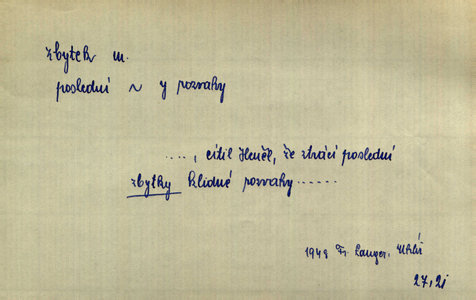 zbytek m.
poslední ~ y rozvahy
...., cítil Heněl, že ztrácí poslední
zbytky klidné rozvahy......
1948 Fr. Langer,
27, 21